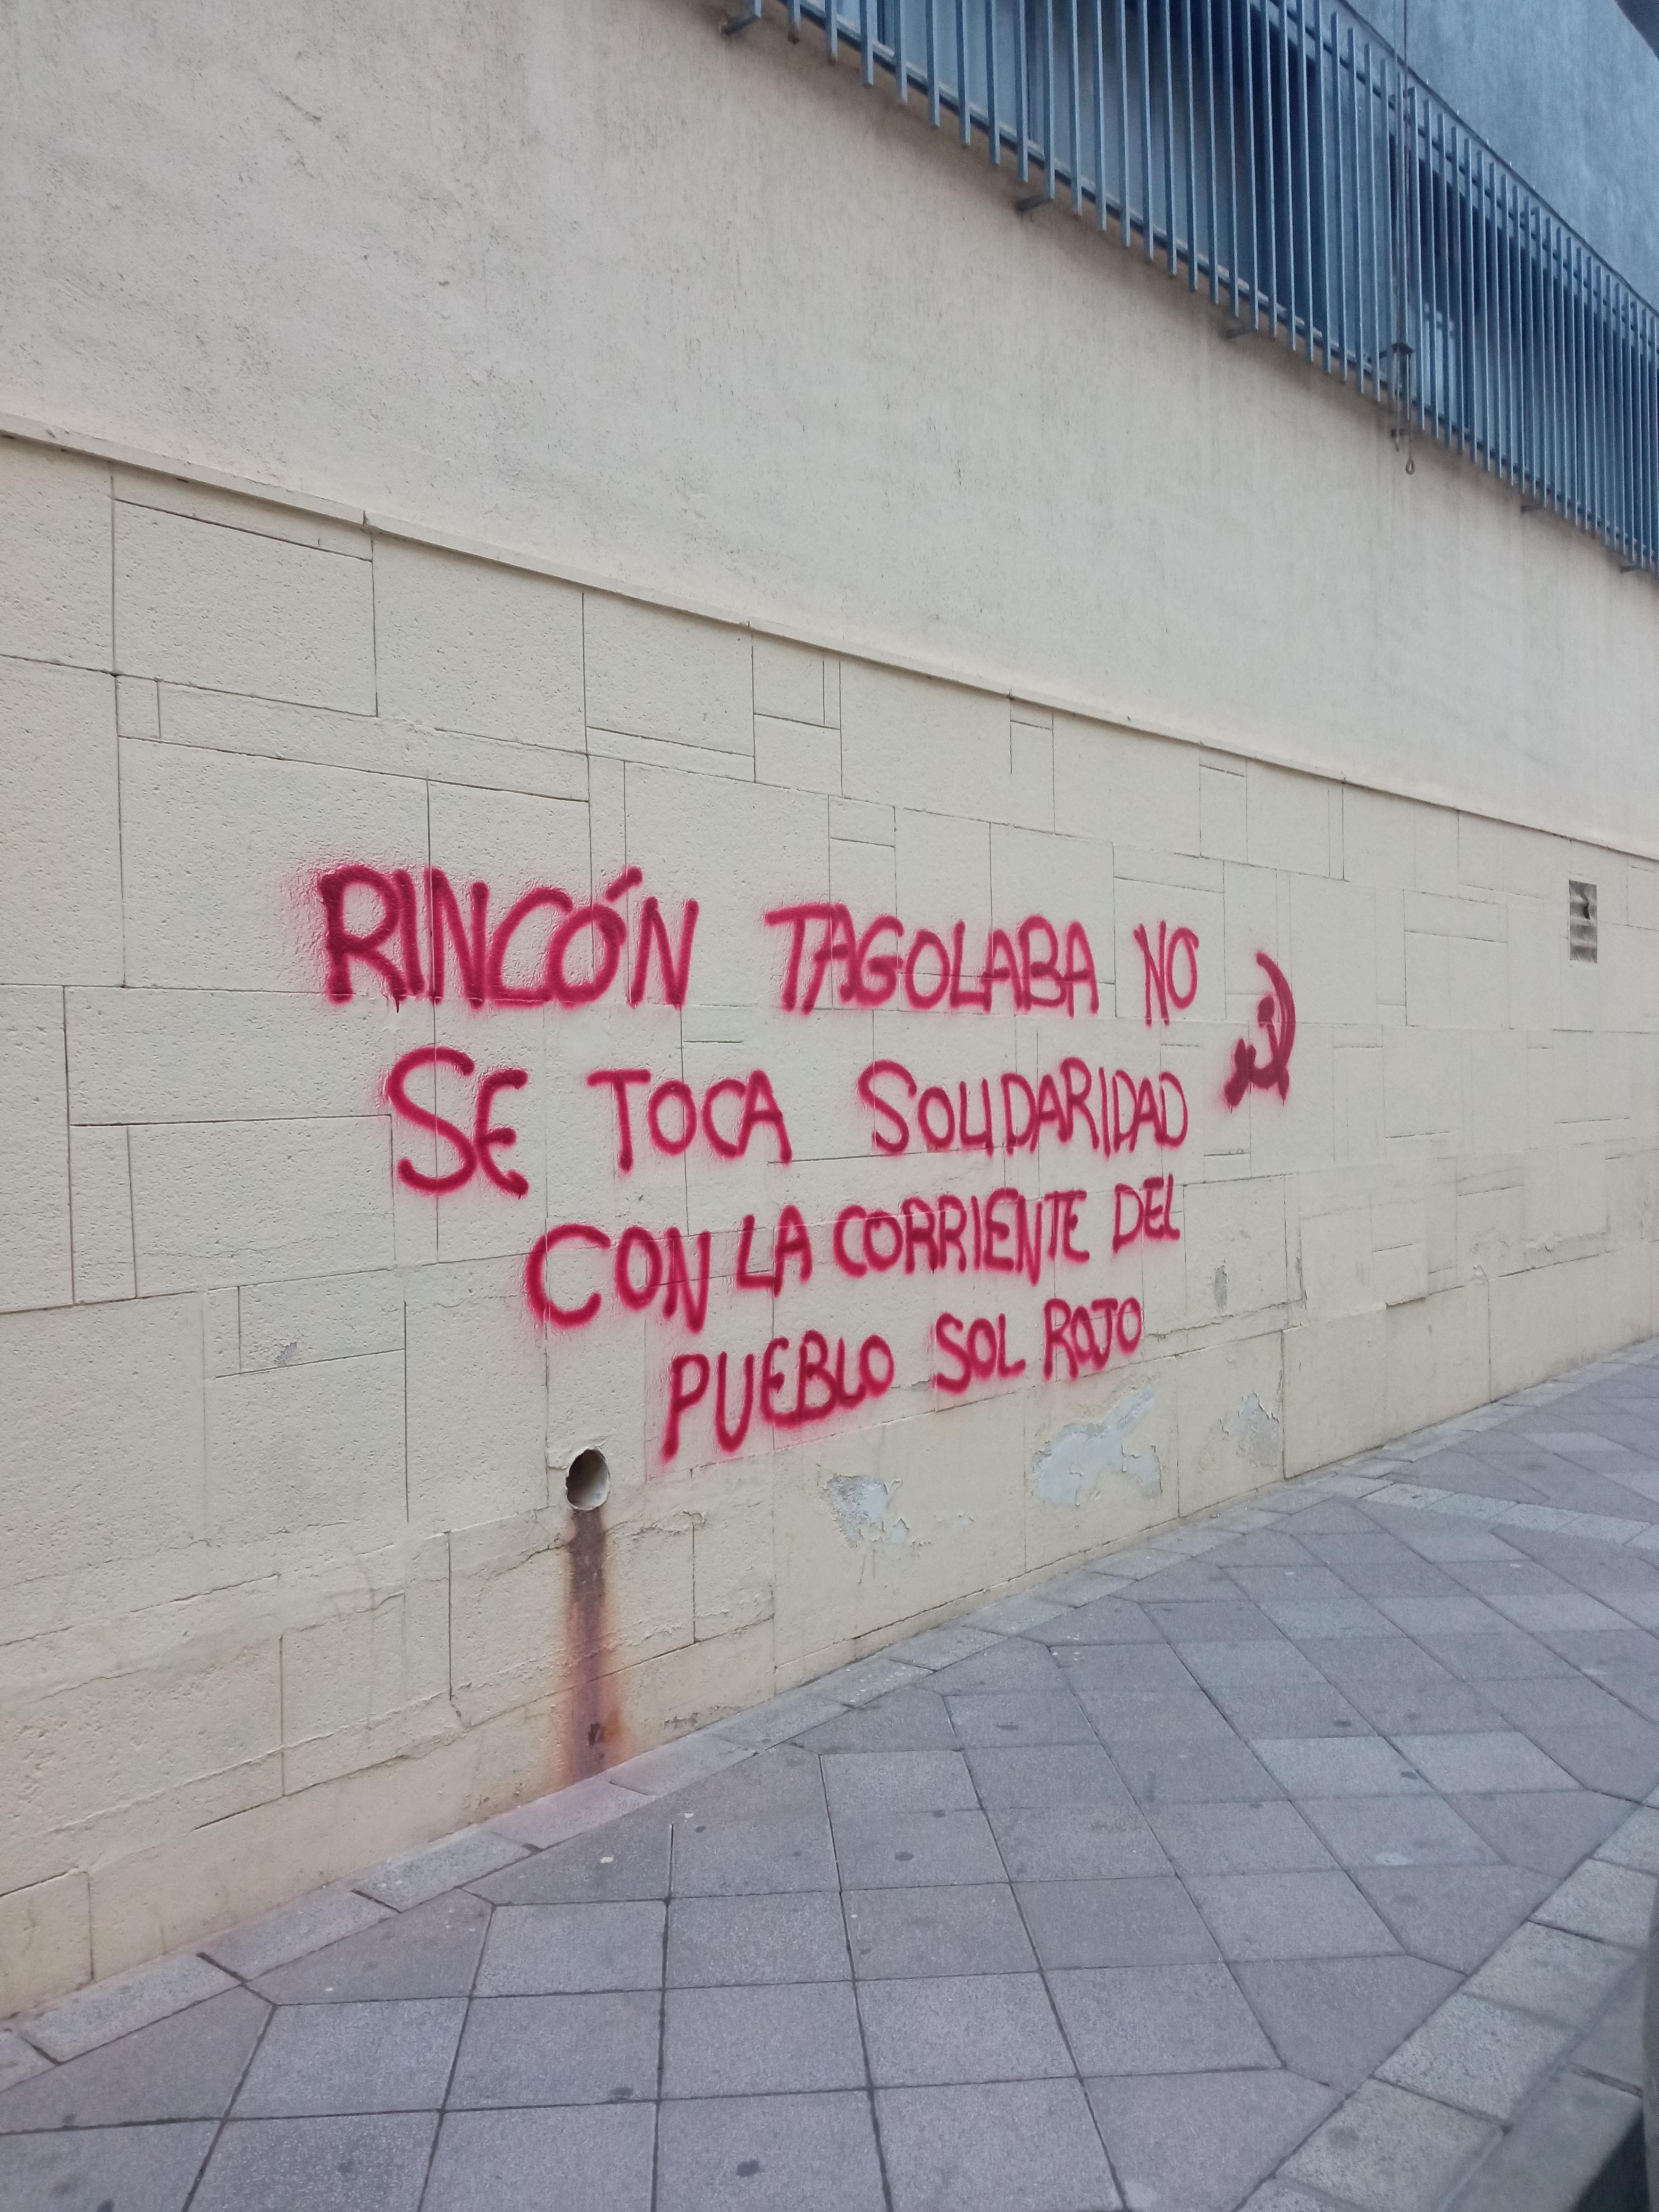 RINCÓN TAGOLABA NO
SE TOCA SOLIDARIDAD
CON LA CORRIENTE DEL
PUEBLO SOL ROJO